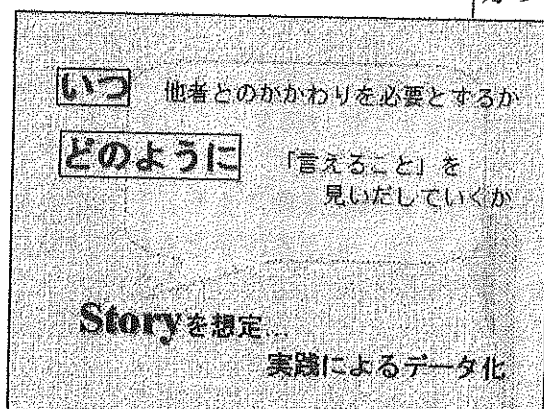 いつ 他者とのかかわりを必要とするか
どのように 「言えること」を
見いだしていくか
Storyを想定...
実践によるデータ化